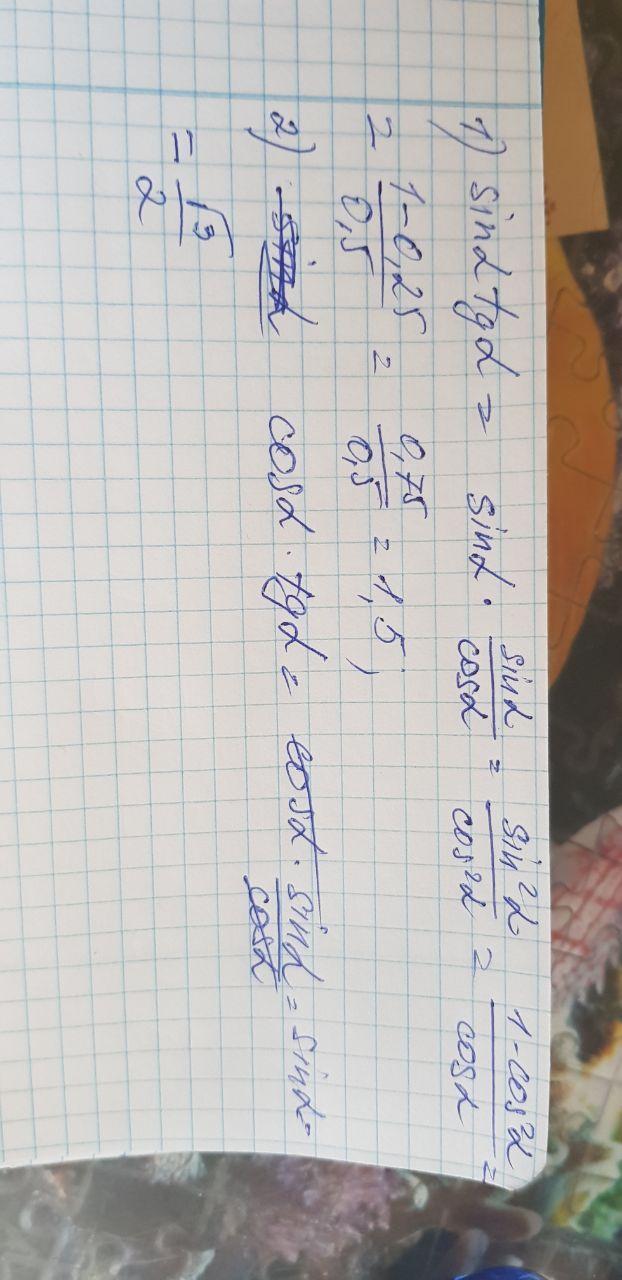 1) sinα tgα = sinα · sinα/cosα = sin²α/cos²α = 1-cos²α/cosα =
= 1-0,25/0,5 = 0,75/0,5 = 1,5,
2) cosα · tgα = cosα · sinα/cosα = sinα =
= √3/2